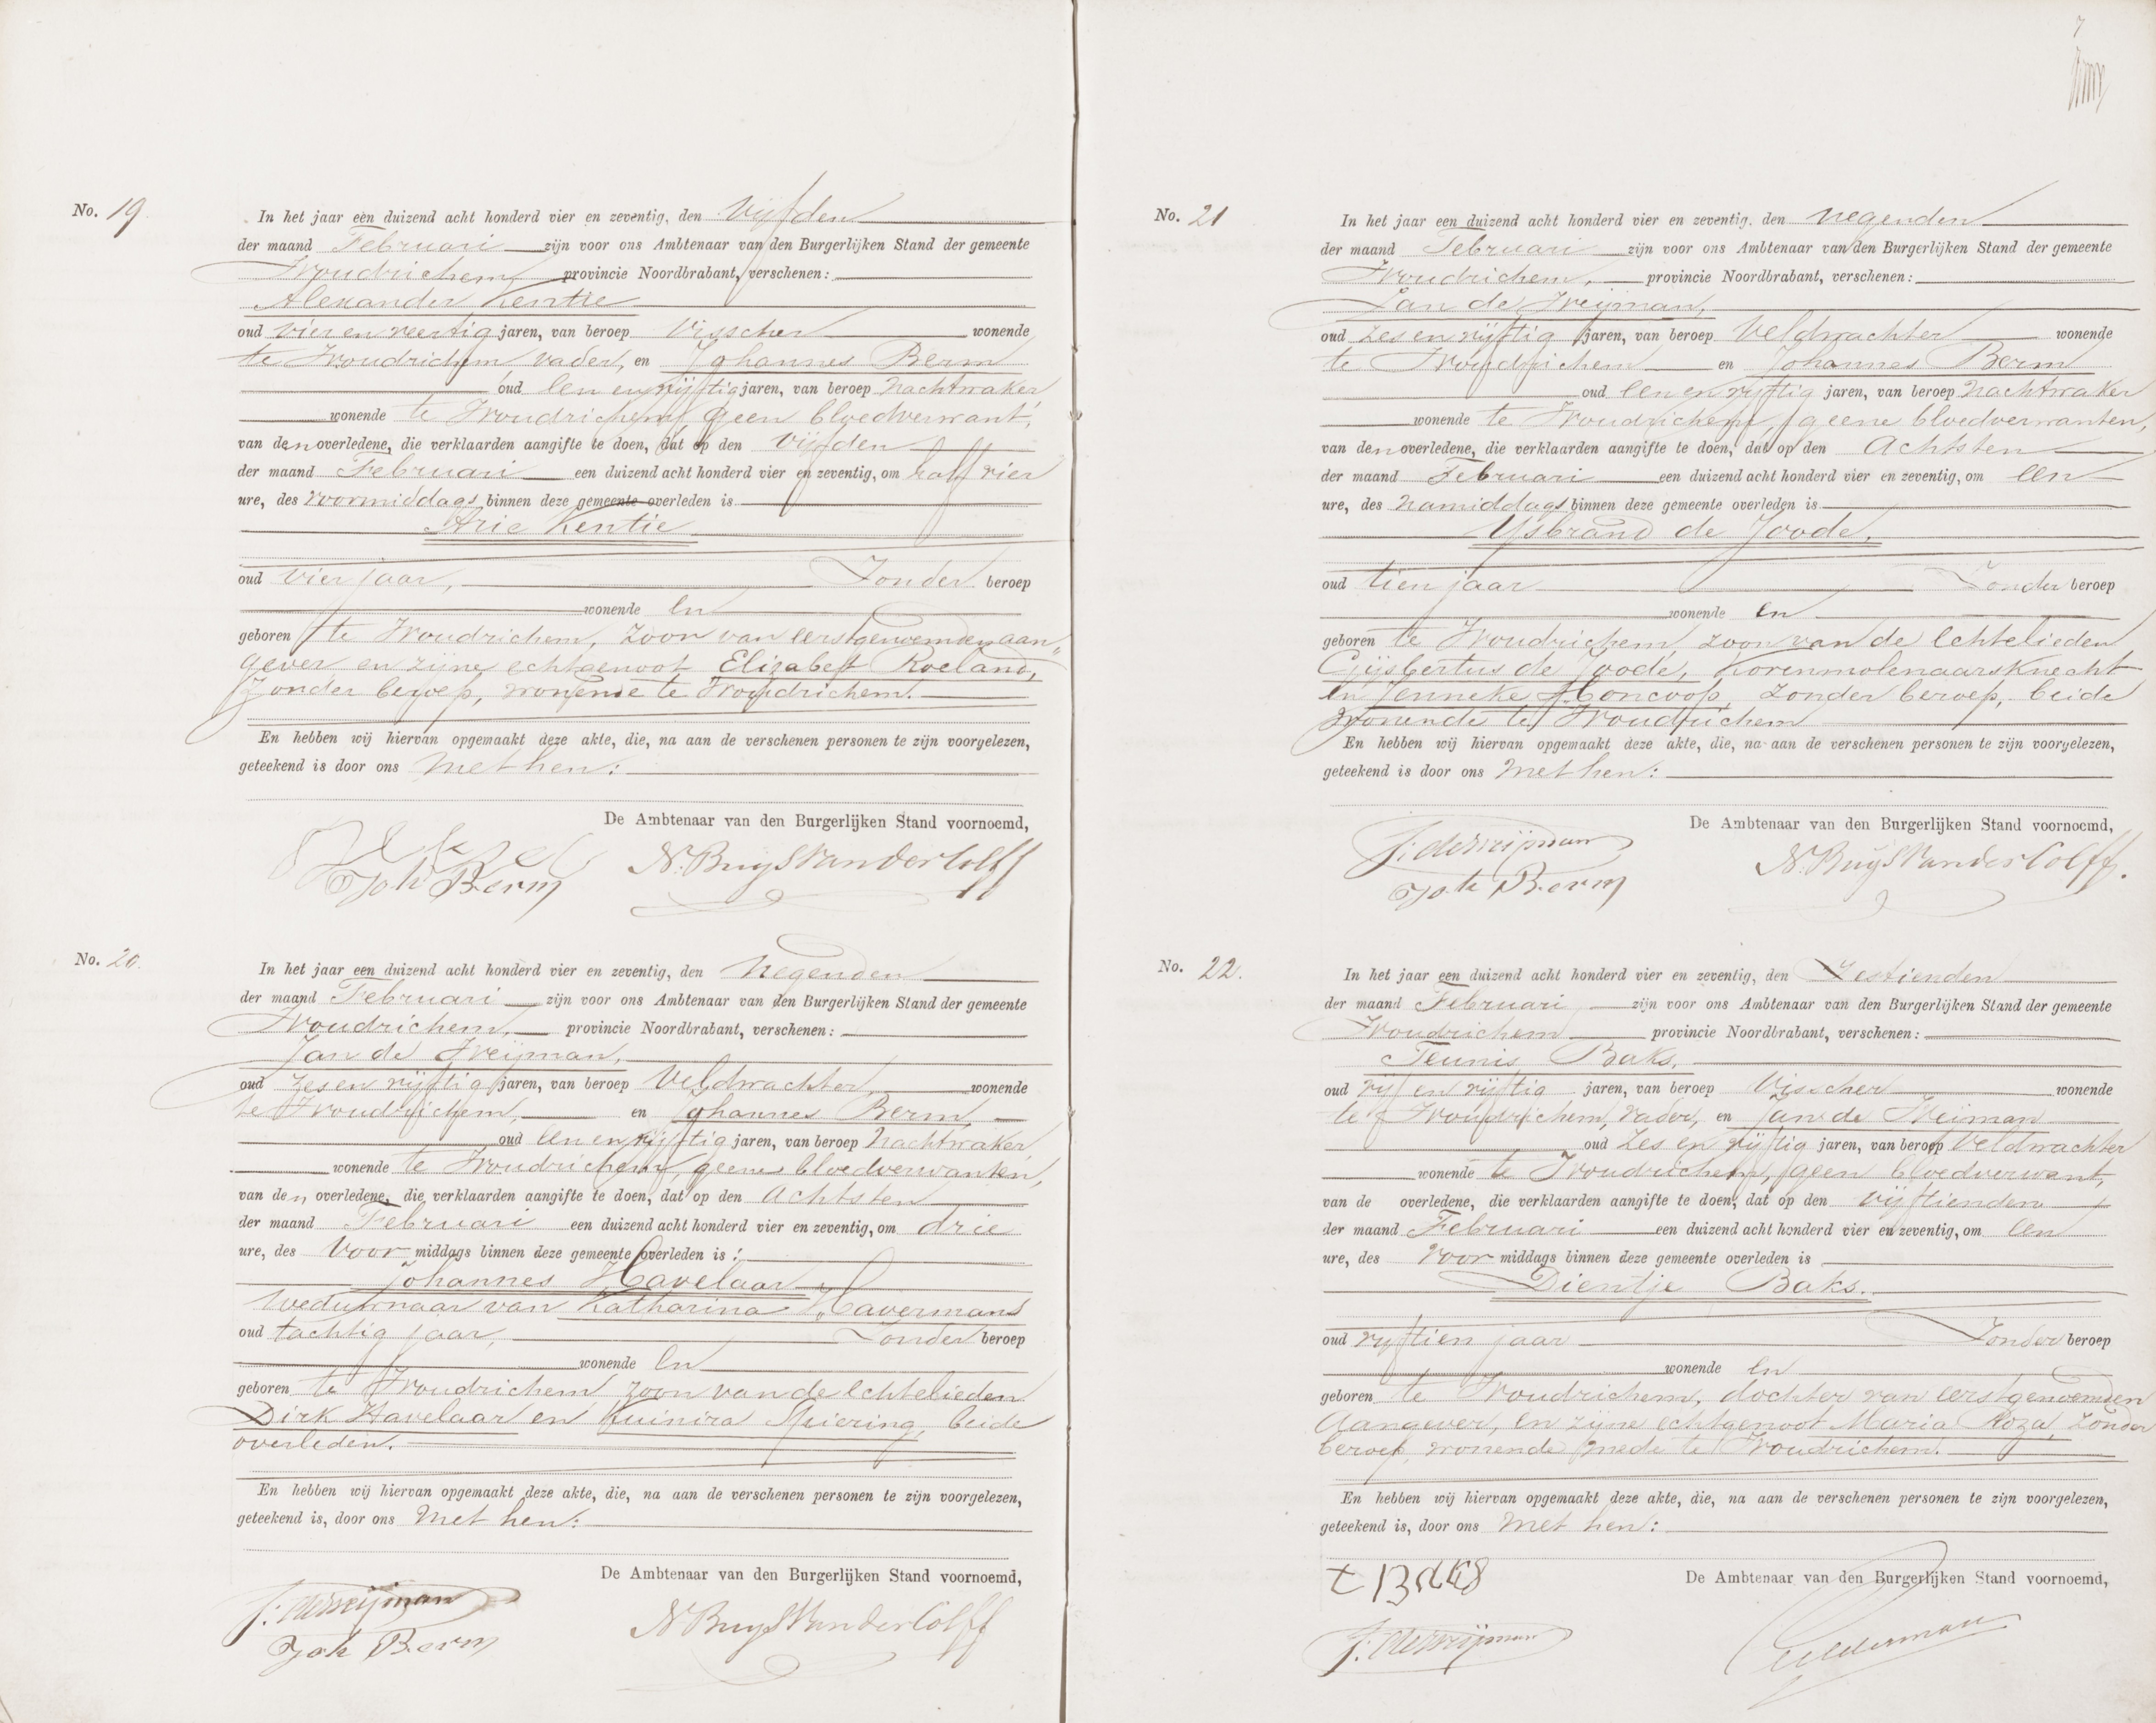 No. 19.
In het jaar een duizend acht honderd vier en zeventig, den vijfden
der maand Februari zijn voor ons Ambtenaar van den Burgerlijken Stand der gemeente
Woudrichem, provincie Noordbrabant, verschenen:
Alexander Kentie
oud vier en veertig jaren, van beroep Visscher wonende
te Woudrichem vader, en Johannes Berm
oud een en vijftig jaren, van beroep Nachtwaker
wonende te Woudrichem geen bloedverwant,
van den overledene, die verklaarden aangifte te doen, dat op den vijfden
der maand Februari een duizend acht honderd vier en zeventig, om half vier
ure, des voormiddags binnen deze gemeente overleden is
Arie Kentie
oud vier jaar, Zonder beroep
wonende en
geboren te Woudrichem, zoon van eerstgenoemden aan„
gever en zijne echtgenoot Elizabeth Roeland,
zonder beroep, wonende te Woudrichem.
En hebben wij hiervan opgemaakt deze akte, die, na aan de verschenen personen te zijn voorgelezen,
geteekend is door ons met hen:
De Ambtenaar van den Burgerlijken Stand voornoemd,
Joh Berm N. Buys van der Colff
No. 20.
In het jaar een duizend acht honderd vier en zeventig, den Negenden
der maand Februari zijn voor ons Ambtenaar van den Burgerlijken Stand der gemeente
Woudrichem, provincie Noordbrabant, verschenen:
Jan de Weijman,
oud zes en vijftig jaren, van beroep Veldwachter, wonende
te Woudrichem, en Johannes Berm,
oud een en vijftig jaren, van beroep Nachtwaker
wonende te Woudrichem, geene bloedverwanten,
van den overledene, die verklaarden aangifte te doen, dat op den Achtsten
der maand Februari een duizend acht honderd vier en zeventig, om drie
ure, des Voor middags binnen deze gemeente overleden is:
Johannes Havelaar
Weduwnaar van Katharina Havermans
oud tachtig jaar, Zonder beroep
wonende en
geboren te Woudrichem, zoon van de Echtelieden
Dirk Havelaar en Kuinira Spiering, beide
overleden.
En hebben wij hiervan opgemaakt deze akte, die, na aan de verschenen personen te zijn voorgelezen,
geteekend is, door ons Met hen:
De Ambtenaar van den Burgerlijken Stand voornoemd,
J: de Weijman
Joh Berm N Buys van der Colff
7
No. 21
In het jaar een duizend acht honderd vier en zeventig, den negenden
der maand Februari zijn voor ons Ambtenaar van den Burgerlijken Stand der gemeente
Woudrichem, provincie Noordbrabant, verschenen:
Jan de Weijman,
oud zes en vijftig jaren, van beroep Veldwachter wonende
te Woudrichem en Johannes Berm
oud een en vijftig jaren, van beroep Nachtwaker
wonende te Woudrichem, geene bloedverwanten,
van den overledene, die verklaarden aangifte te doen, dat op den Achtsten
der maand Februari een duizend acht honderd vier en zeventig, om een
ure, des namiddags binnen deze gemeente overleden is
IJsbrand de Joode,
oud tien jaar Zonder beroep
wonende en
geboren te Woudrichem zoon van de Echtelieden
Gijsbertus de Joode, Korenmolenaarsknecht
en Jenneke Honcoop, zonder beroep, beide
wonende te Woudrichem
En hebben wij hiervan opgemaakt deze akte, die, na aan de verschenen personen te zijn voorgelezen,
geteekend is door ons Met hen:
De Ambtenaar van den Burgerlijken Stand voornoemd,
J: de Weijman
Joh Berm N. Buys van der Colff.
No. 22.
In het jaar een duizend acht honderd vier en zeventig, den Zestienden
der maand Februari, zijn voor ons Ambtenaar van den Burgerlijken Stand der gemeente
Woudrichem provincie Noordbrabant, verschenen:
Teunis Baks,
oud vijf en vijftig jaren, van beroep Visscher wonende
te Woudrichem, vader, en Jan de Weiman
oud zes en vijftig jaren, van beroep Veldwachter
wonende te Woudrichem, geen bloedverwant,
van de overledene, die verklaarden aangifte te doen, dat op den vijftienden
der maand Februari een duizend acht honderd vier en zeventig, om een
ure, des Voor middags binnen deze gemeente overleden is
Dientje Baks.
oud vijftien jaar Zonder beroep
wonende en
geboren te Woudrichem, dochter van eerstgenoemden
Aangever, en zijne echtgenoot Maria Roza, zonder
beroep, wonende mede te Woudrichem.
En hebben wij hiervan opgemaakt deze akte, die, na aan de verschenen personen te zijn voorgelezen,
geteekend is, door ons Met hen:
De Ambtenaar van den Burgerlijken Stand voornoemd,
t Baks
J: de Weijman